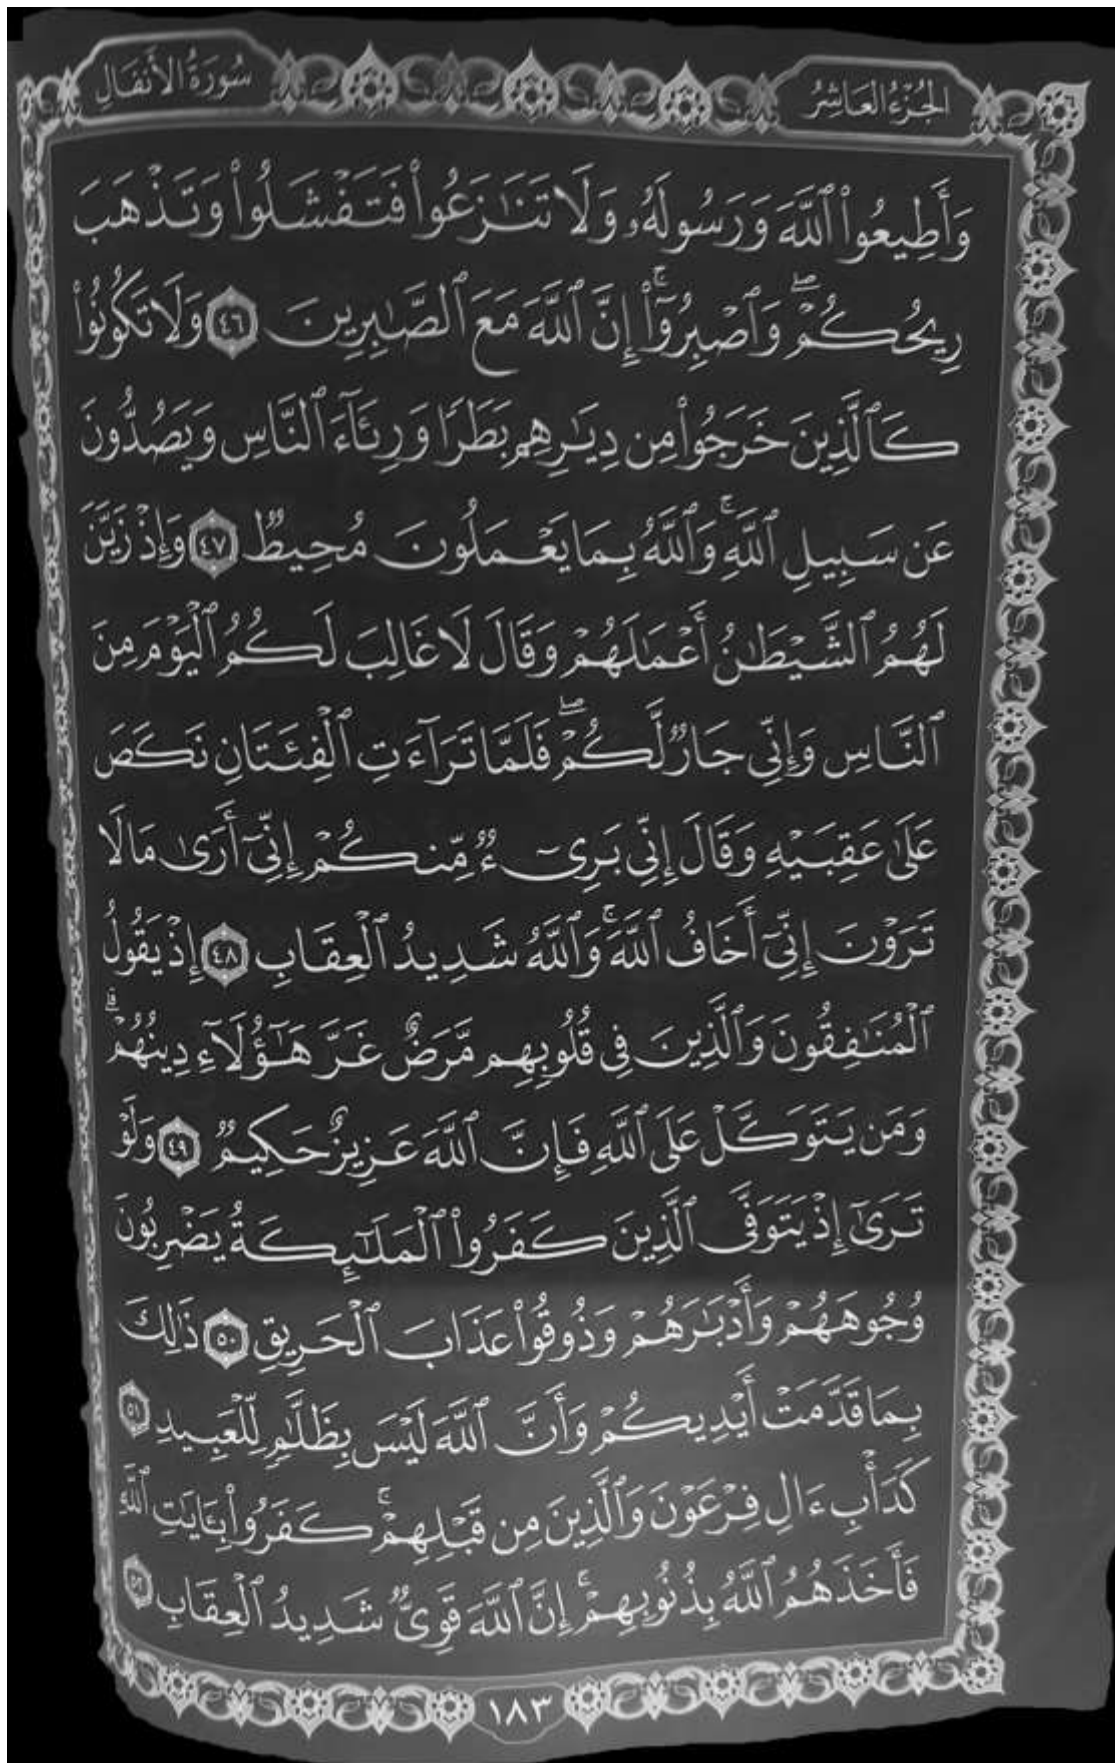 الجُزْءُ العَاشِرُ
سُورَةُ الأَنفَالِ
وَأَطِيعُوا۟ ٱللَّهَ وَرَسُولَهُۥ وَلَا تَنَٰزَعُوا۟ فَتَفْشَلُوا۟ وَتَذْهَبَ
رِيحُكُمْۖ وَٱصْبِرُوٓا۟ۚ إِنَّ ٱللَّهَ مَعَ ٱلصَّٰبِرِينَ ٤٦ وَلَا تَكُونُوا۟
كَٱلَّذِينَ خَرَجُوا۟ مِن دِيَٰرِهِم بَطَرًا وَرِئَآءَ ٱلنَّاسِ وَيَصُدُّونَ
عَن سَبِيلِ ٱللَّهِۚ وَٱللَّهُ بِمَا يَعْمَلُونَ مُحِيطٌ ٤٧ وَإِذْ زَيَّنَ
لَهُمُ ٱلشَّيْطَٰنُ أَعْمَٰلَهُمْ وَقَالَ لَا غَالِبَ لَكُمُ ٱلْيَوْمَ مِنَ
ٱلنَّاسِ وَإِنِّى جَارٌ لَّكُمْۖ فَلَمَّا تَرَآءَتِ ٱلْفِئَتَانِ نَكَصَ
عَلَىٰ عَقِبَيْهِ وَقَالَ إِنِّى بَرِىٓءٌ مِّنكُمْ إِنِّىٓ أَرَىٰ مَا لَا
تَرَوْنَ إِنِّىٓ أَخَافُ ٱللَّهَۚ وَٱللَّهُ شَدِيدُ ٱلْعِقَابِ ٤٨ إِذْ يَقُولُ
ٱلْمُنَٰفِقُونَ وَٱلَّذِينَ فِى قُلُوبِهِم مَّرَضٌ غَرَّ هَٰٓؤُلَآءِ دِينُهُمْۗ
وَمَن يَتَوَكَّلْ عَلَى ٱللَّهِ فَإِنَّ ٱللَّهَ عَزِيزٌ حَكِيمٌ ٤٩ وَلَوْ
تَرَىٰٓ إِذْ يَتَوَفَّى ٱلَّذِينَ كَفَرُوا۟ ٱلْمَلَٰٓئِكَةُ يَضْرِبُونَ
وُجُوهَهُمْ وَأَدْبَٰرَهُمْ وَذُوقُوا۟ عَذَابَ ٱلْحَرِيقِ ٥٠ ذَٰلِكَ
بِمَا قَدَّمَتْ أَيْدِيكُمْ وَأَنَّ ٱللَّهَ لَيْسَ بِظَلَّٰمٍ لِّلْعَبِيدِ ٥١
كَدَأْبِ ءَالِ فِرْعَوْنَ وَٱلَّذِينَ مِن قَبْلِهِمْۚ كَفَرُوا۟ بِـَٔايَٰتِ ٱللَّهِ
فَأَخَذَهُمُ ٱللَّهُ بِذُنُوبِهِمْۚ إِنَّ ٱللَّهَ قَوِىٌّ شَدِيدُ ٱلْعِقَابِ ٥٢
١٨٣